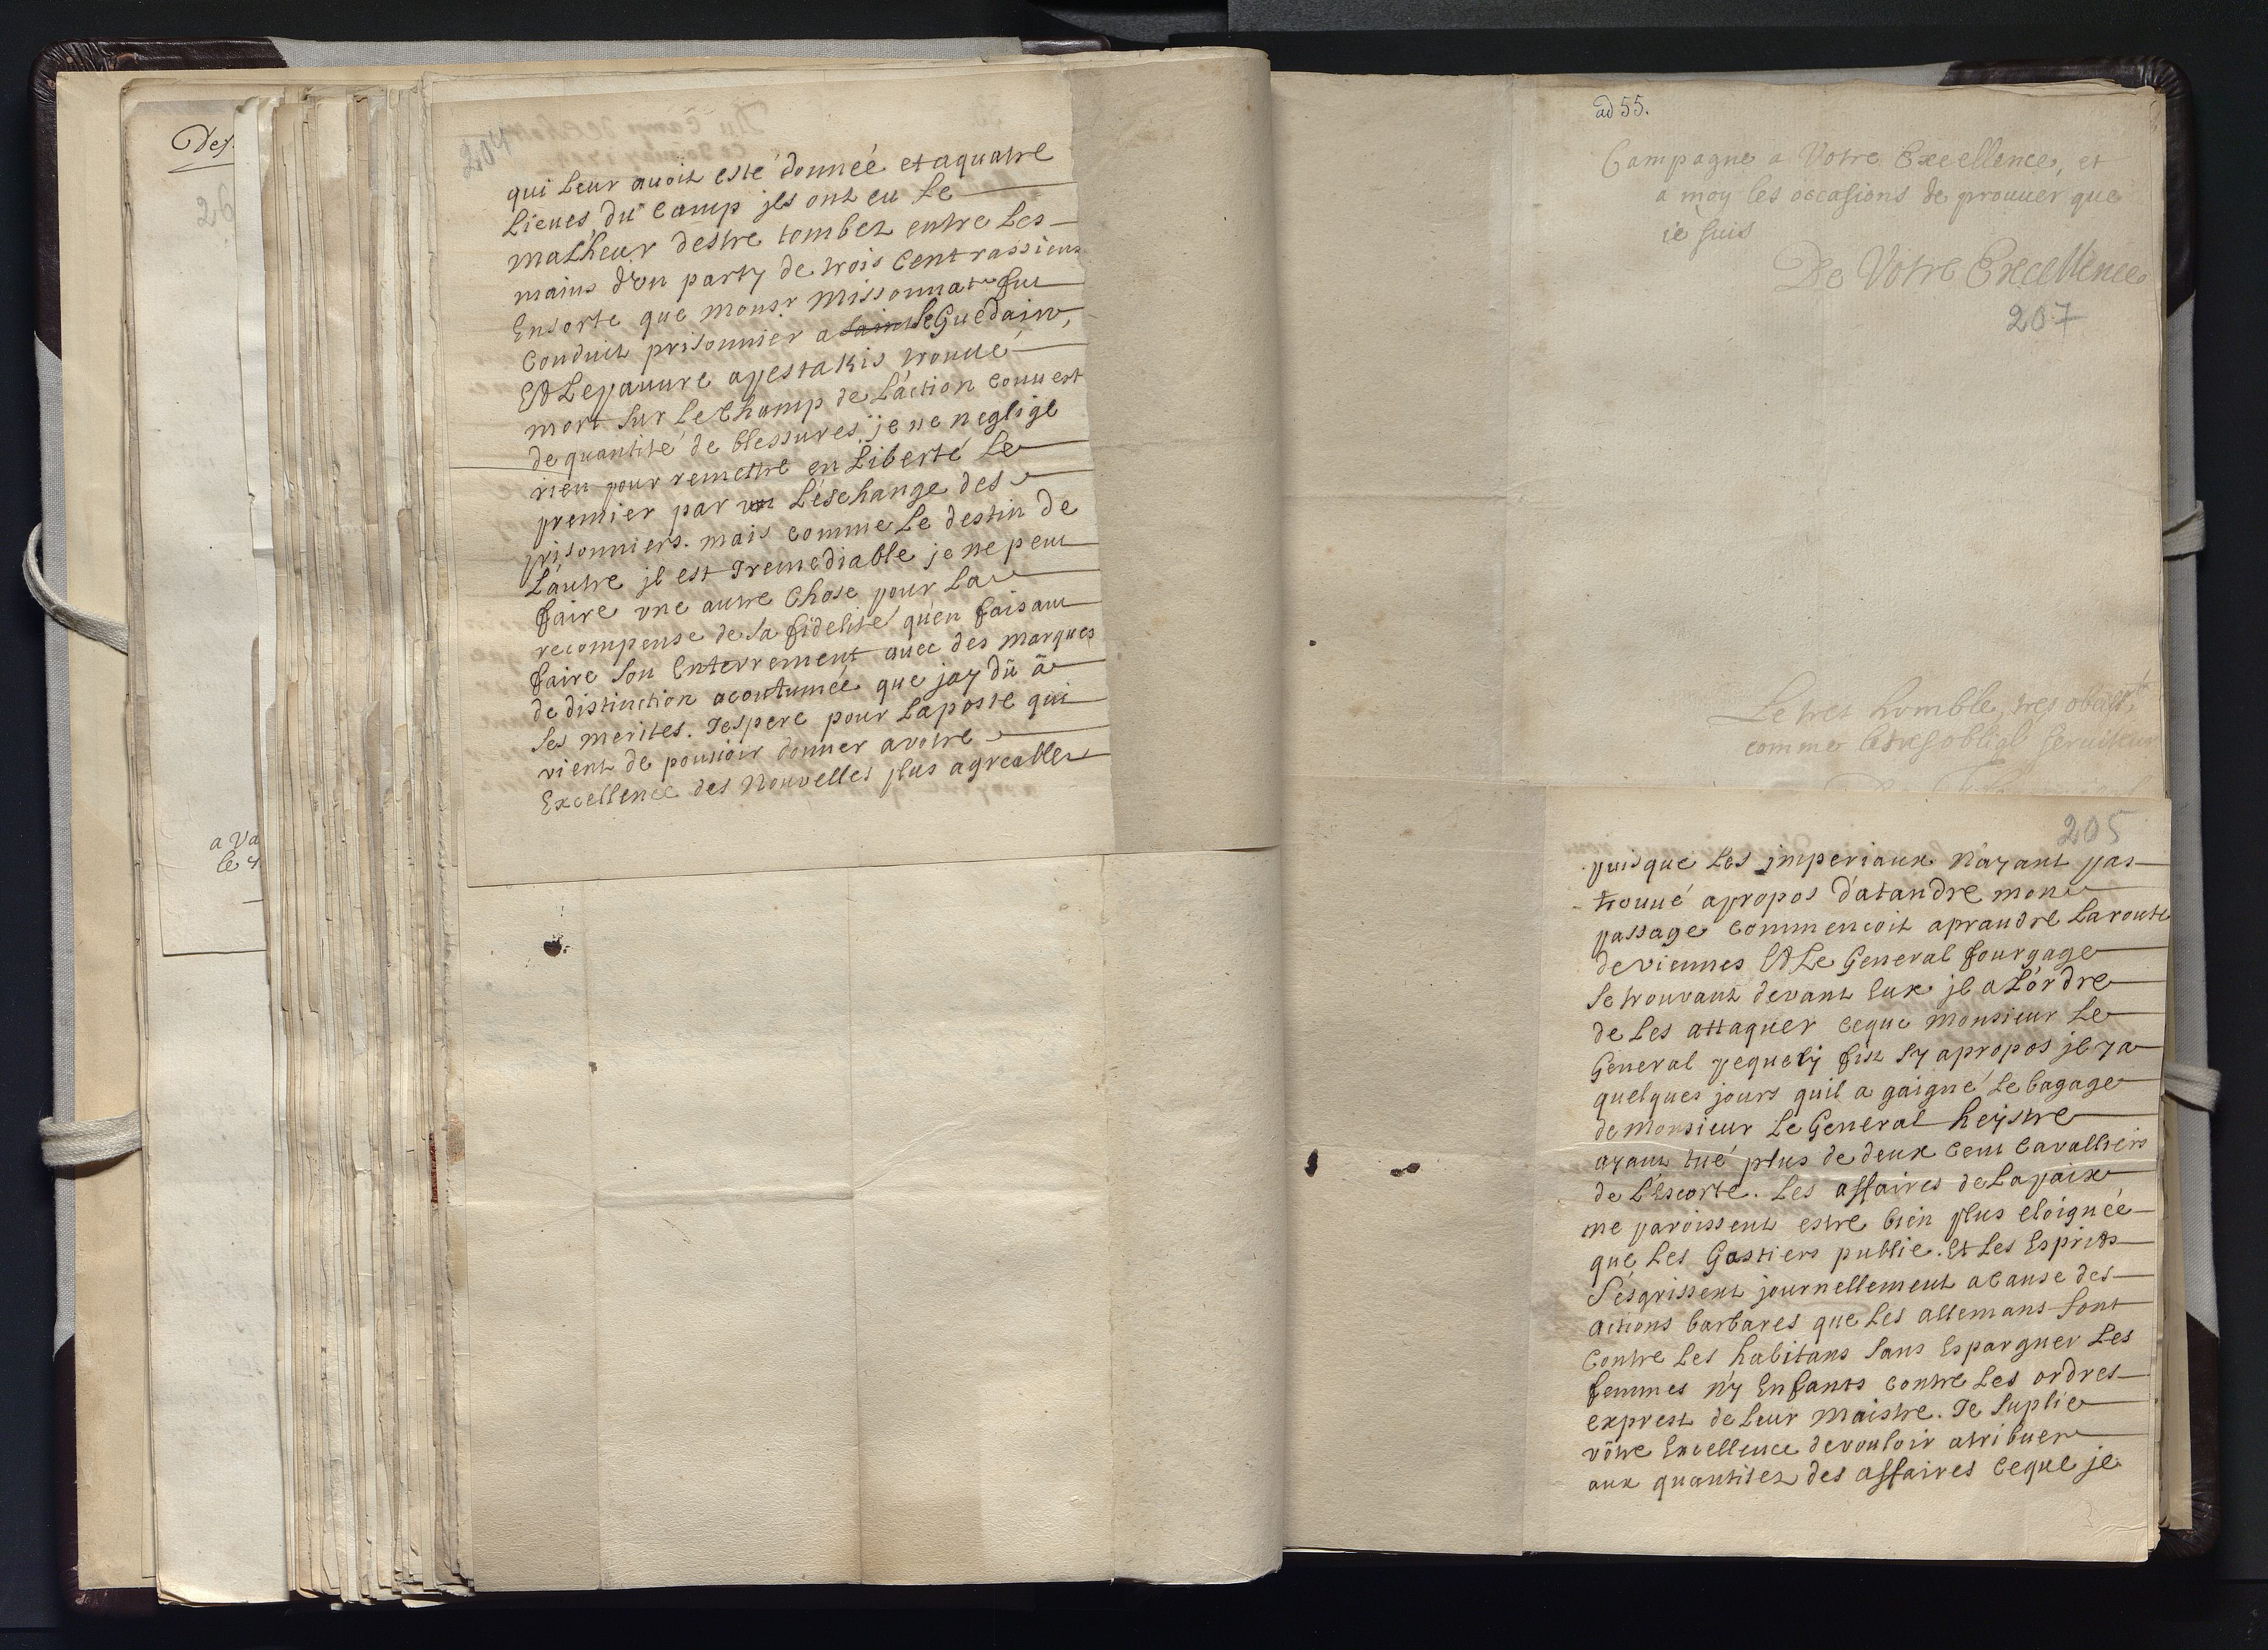 Des.
26
a Va
le 4
204
qui Leur auoit esté donneé et aquatre
Lieues du Camp jls ont eu Le
malheur destre tombez entre Les
mains d'vn party de trois Cent rassiens
Ensorte que monsr. Missonnat fut
Conduit prisonnier a sainte Le Guedain,
Et Lepauure apestakis trouué
mort sur Le Champ de L'action Couuert
de quantité de blessures. je ne neglige
rien pour remettre en Liberté Le
premier par un L'eschange des
prisonniers. mais comme Le destin de
L'autre jl est Jremediable je ne peut
faire vne autre Chose pour La
recompense de sa fidelité qu'en faisant
faire son Enterrement auec des marques
de distinction acoutumeé que jay dû â
ses merites. Jespere pour Laposte qui
vient de pouuoir donner avotre
Excellence des Nouvelles plus agreables
ad 55.
Campagne a Votre Excellence, et
a moy les occasions de prouuer que
ie suis
De Votre Excellence
207
Le tres humble, tres obeist.
comme tres obligé seruiteur
205
puisque Les jmperiaux N'ayant pas
trouué apropos d'atandre mon
passage Commencoit aprandre Laroute
deviennes Et Le General fourgage
se trouvant devant Eux jl a L'ordre
de Les attaquer Ceque Monsieur Le
General pequely fist sy apropos jl ya
quelques jours quil a gaigné Le bagage
de Monsieur Le General heystre
ayant tué plus de deux Cent Cavalliers
de L'Escorte. Les affaires de Lapaix
me paroissent estre bien plus eloigneé
que Les Gastiers publie. Et Les Esprits
s'esgrissent journellement acause des
actions barbares que Les allemans font
Contre Les habitans sans Espargner Les
femmes n'y Enfants Contre Les ordres
exprest de Leur Maistre. Je suplie
vôtre Excellence devouloir atribuer
aux quantitez des affaires Ceque je